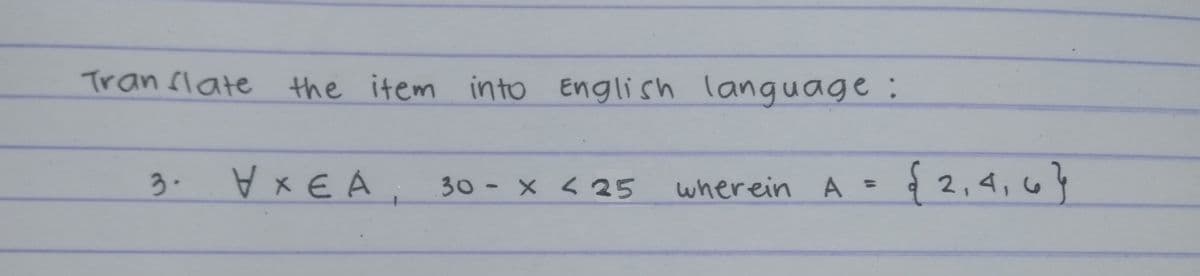 Translate the item into English language :
3. ∀ x ∈ A, 30 - x < 25 wherein A = {2, 4, 6}